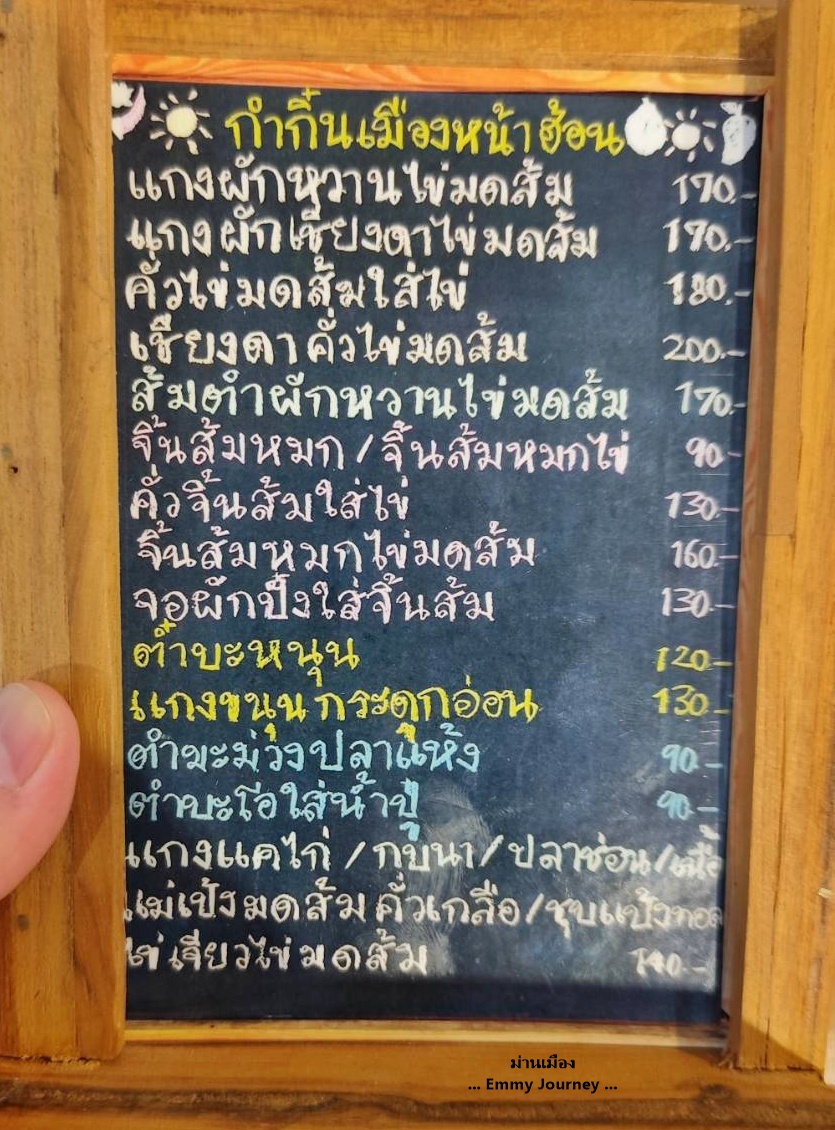 กำกิ๋นเมืองหน้าฮ้อน
แกงผักหวานไข่มดส้ม 170.-
แกงผักเชียงดาไข่มดส้ม 170.-
คั่วไข่มดส้มใส่ไข่ 180.-
เชียงดาคั่วไข่มดส้ม 200.-
ส้มตำผักหวานไข่มดส้ม 170.-
จิ๊นส้มหมก / จิ๊นส้มหมกไข่ 90.-
คั่วจิ๊นส้มใส่ไข่ 130.-
จิ๊นส้มหมกไข่มดส้ม 160.-
จอผักปั๋งใส่จิ๊นส้ม 130.-
ตำบะหนุน 120.-
แกงขนุนกระดูกอ่อน 130.-
ตำมะม่วงปลาแห้ง 90.-
ตำบะโอใส่น้ำปู๋ 90.-
แกงแคไก่ / กบนา / ปลาช่อน /
แม่เป้งมดส้มคั่วเกลือ / ชุบแป้งทอด
ไข่เจียวไข่มดส้ม 140.-
ม่านเมือง
... Emmy Journey ...